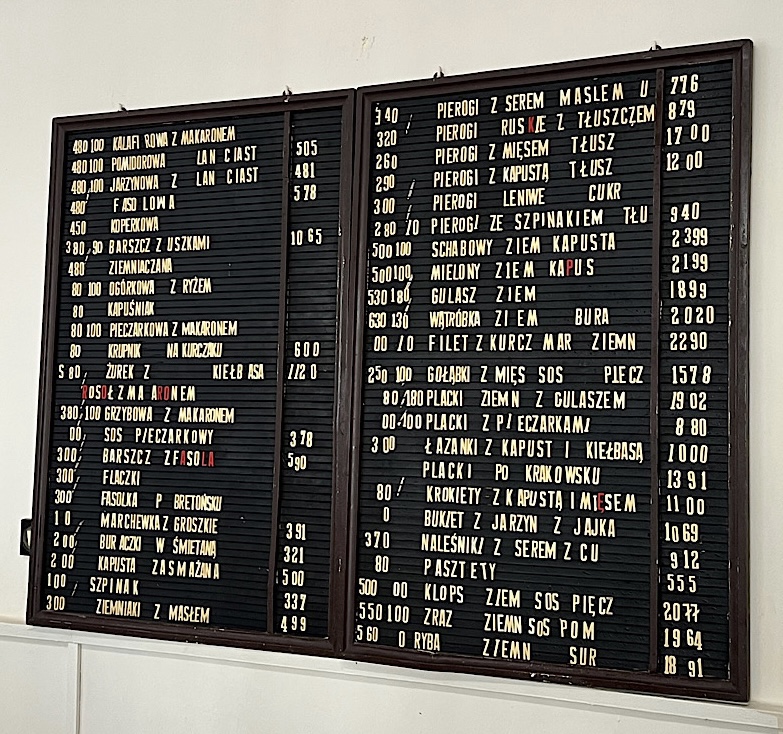 480 100 KALAFI ROWA Z MAKARONEM
480 100 POMIDOROWA LAN CIAST 505
480,100 JARZYNOWA Z LAN CIAST 481
480 FASO LOWA 578
450 KOPERKOWA
380,90 BARSZCZ Z USZKAMI 1065
480 ZIEMNIACZANA
80 100 OGÓRKOWA Z RYŻEM
80 KAPUŚNIAK
80 100 PIECZARKOWA Z MAKARONEM
80 KRUPNIK NA KURCZAKU 600
580, ŻUREK Z KIEŁB ASA 1120
ROSOŁ Z MA ARONEM
380,100 GRZYBOWA Z MAKARONEM
00, SOS PIECZARKOWY 378
300 BARSZCZ Z FASOLA 590
300 FLACZKI
300 FASOLKA P BRETOŃSKU
10 MARCHEWKA Z GROSZKIE 391
200 BUR ACZKI W ŚMIETANĄ 321
200 KAPUSTA ZASMAŻANA 500
100 SZPINAK 337
300 ZIEMNIAKI Z MASŁEM 499
340 PIEROGI Z SEREM MASLEM U 776
320 PIEROGI RUSKIE Z TŁUSZCZEM 879
260 PIEROGI Z MIĘSEM TŁUSZ 1700
290 PIEROGI Z KAPUSTĄ TŁUSZ 1200
300 PIEROGI LENIWE CUKR
280 70 PIEROGI ZE SZPINAKIEM TŁU 940
500100 SCHABOWY ZIEM KAPUSTA 2399
500100, MIELONY ZIEM KAPUS 2199
530 180, GULASZ ZIEM 1899
630 130 WĄTRÓBKA ZIEM BURA 2020
00 70 FILET Z KURCZ MAR ZIEMN 2290
250 100 GOŁĄBKI Z MIĘS SOS PIECZ 1578
80,180 PLACKI ZIEMN Z GULASZEM 1902
00,100 PLACKI Z PIECZARKAMI 880
300 ŁAZANKI Z KAPUST I KIEŁBASĄ 1000
PLACKI PO KRAKOWSKU 1391
80 KROKIETY Z KAPUSTĄ I MIĘSEM 1100
0 BUKIET Z JARZYN Z JAJKA 1069
370 NALEŚNIKI Z SEREM Z CU 912
80 PASZTETY 555
500 00 KLOPS ZIEM SOS PIĘCZ 2077
550100 ZRAZ ZIEMN SOS POM 1964
560 0 RYBA ZIEMN SUR 1891